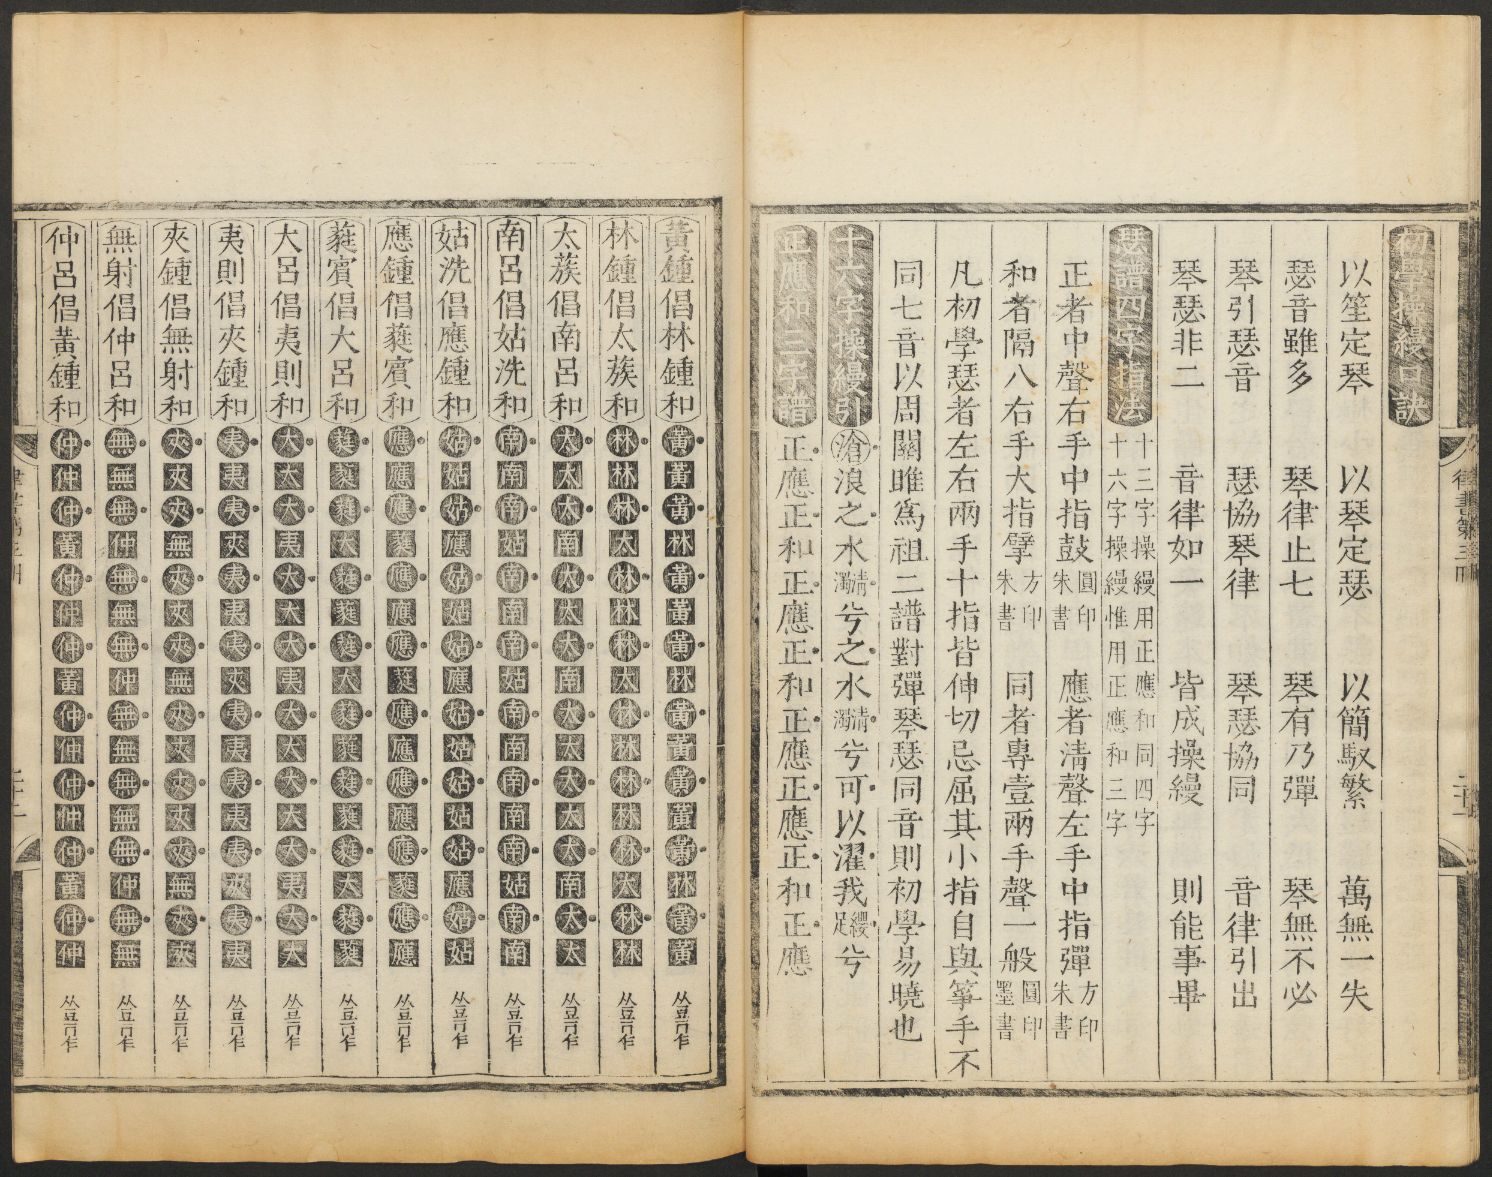 初學操縵口訣
以笙定琴　以琴定瑟　以簡馭繁　萬無一失
瑟音雖多　琴律止七　琴有乃彈　琴無不必
琴引瑟音　瑟協琴律　琴瑟協同　音律引出
琴瑟非二　音律如一　皆成操縵　則能事畢
瑟譜四字指法　十三字操縵用正應和同四字
十六字操縵惟用正應和三字
正者中聲右手中指鼓圓印朱書　應者清聲左手中指彈方印朱書
和者隔八右手大指擘方印朱書　同者專壹兩手聲一般圓印墨書
凡初學瑟者左右兩手十指皆伸切忌屈其小指自與箏手不
同七音以周關雎爲祖二譜對彈琴瑟同音則初學易曉也
十六字操縵引　滄浪之水清濁兮之水清濁兮可以濯我纓足兮
正應和三字譜　正應正和正應正和正應正應正和正應
律書第三冊　二十一
黃鍾倡林鍾和　黃黃黃林黃黃黃林黃黃黃黃黃林黃黃
林鍾倡太蔟和　林林林太林林林太林林林林林太林林
太蔟倡南呂和　太太太南太太太南太太太太太南太太
南呂倡姑洗和　南南南姑南南南姑南南南南南姑南南
姑洗倡應鍾和　姑姑姑應姑姑姑應姑姑姑姑姑應姑姑
應鍾倡蕤賓和　應應應蕤應應應蕤應應應應應蕤應應
蕤賓倡大呂和　蕤蕤蕤大蕤蕤蕤大蕤蕤蕤蕤蕤大蕤蕤
大呂倡夷則和　大大大夷大大大夷大大大大大夷大大
夷則倡夾鍾和　夷夷夷夾夷夷夷夾夷夷夷夷夷夾夷夷
夾鍾倡無射和　夾夾夾無夾夾夾無夾夾夾夾夾無夾夾
無射倡仲呂和　無無無仲無無無仲無無無無無仲無無
仲呂倡黃鍾和　仲仲仲黃仲仲仲黃仲仲仲仲仲黃仲仲